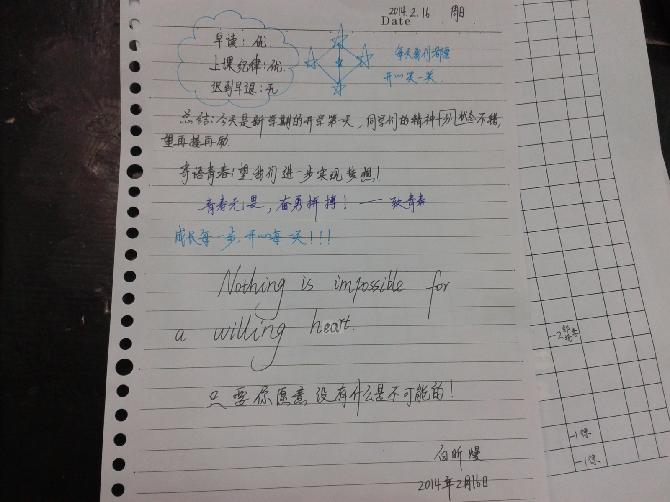 2014.2.16 周日
Date
早读：优
上课纪律：优
迟到早退：无
每天我们都要
开心笑一笑
总结：今天是新学期的开学第一天，同学们的精神十分状态不错，
望再接再励
寄语青春！望我们进一步实现梦想！
青春无畏，奋勇拼搏！——致青春
成长每一步，开心每一天！！！
Nothing is impossible for
a willing heart.
只要你愿意，没有什么是不可能的！
2014年2月16日